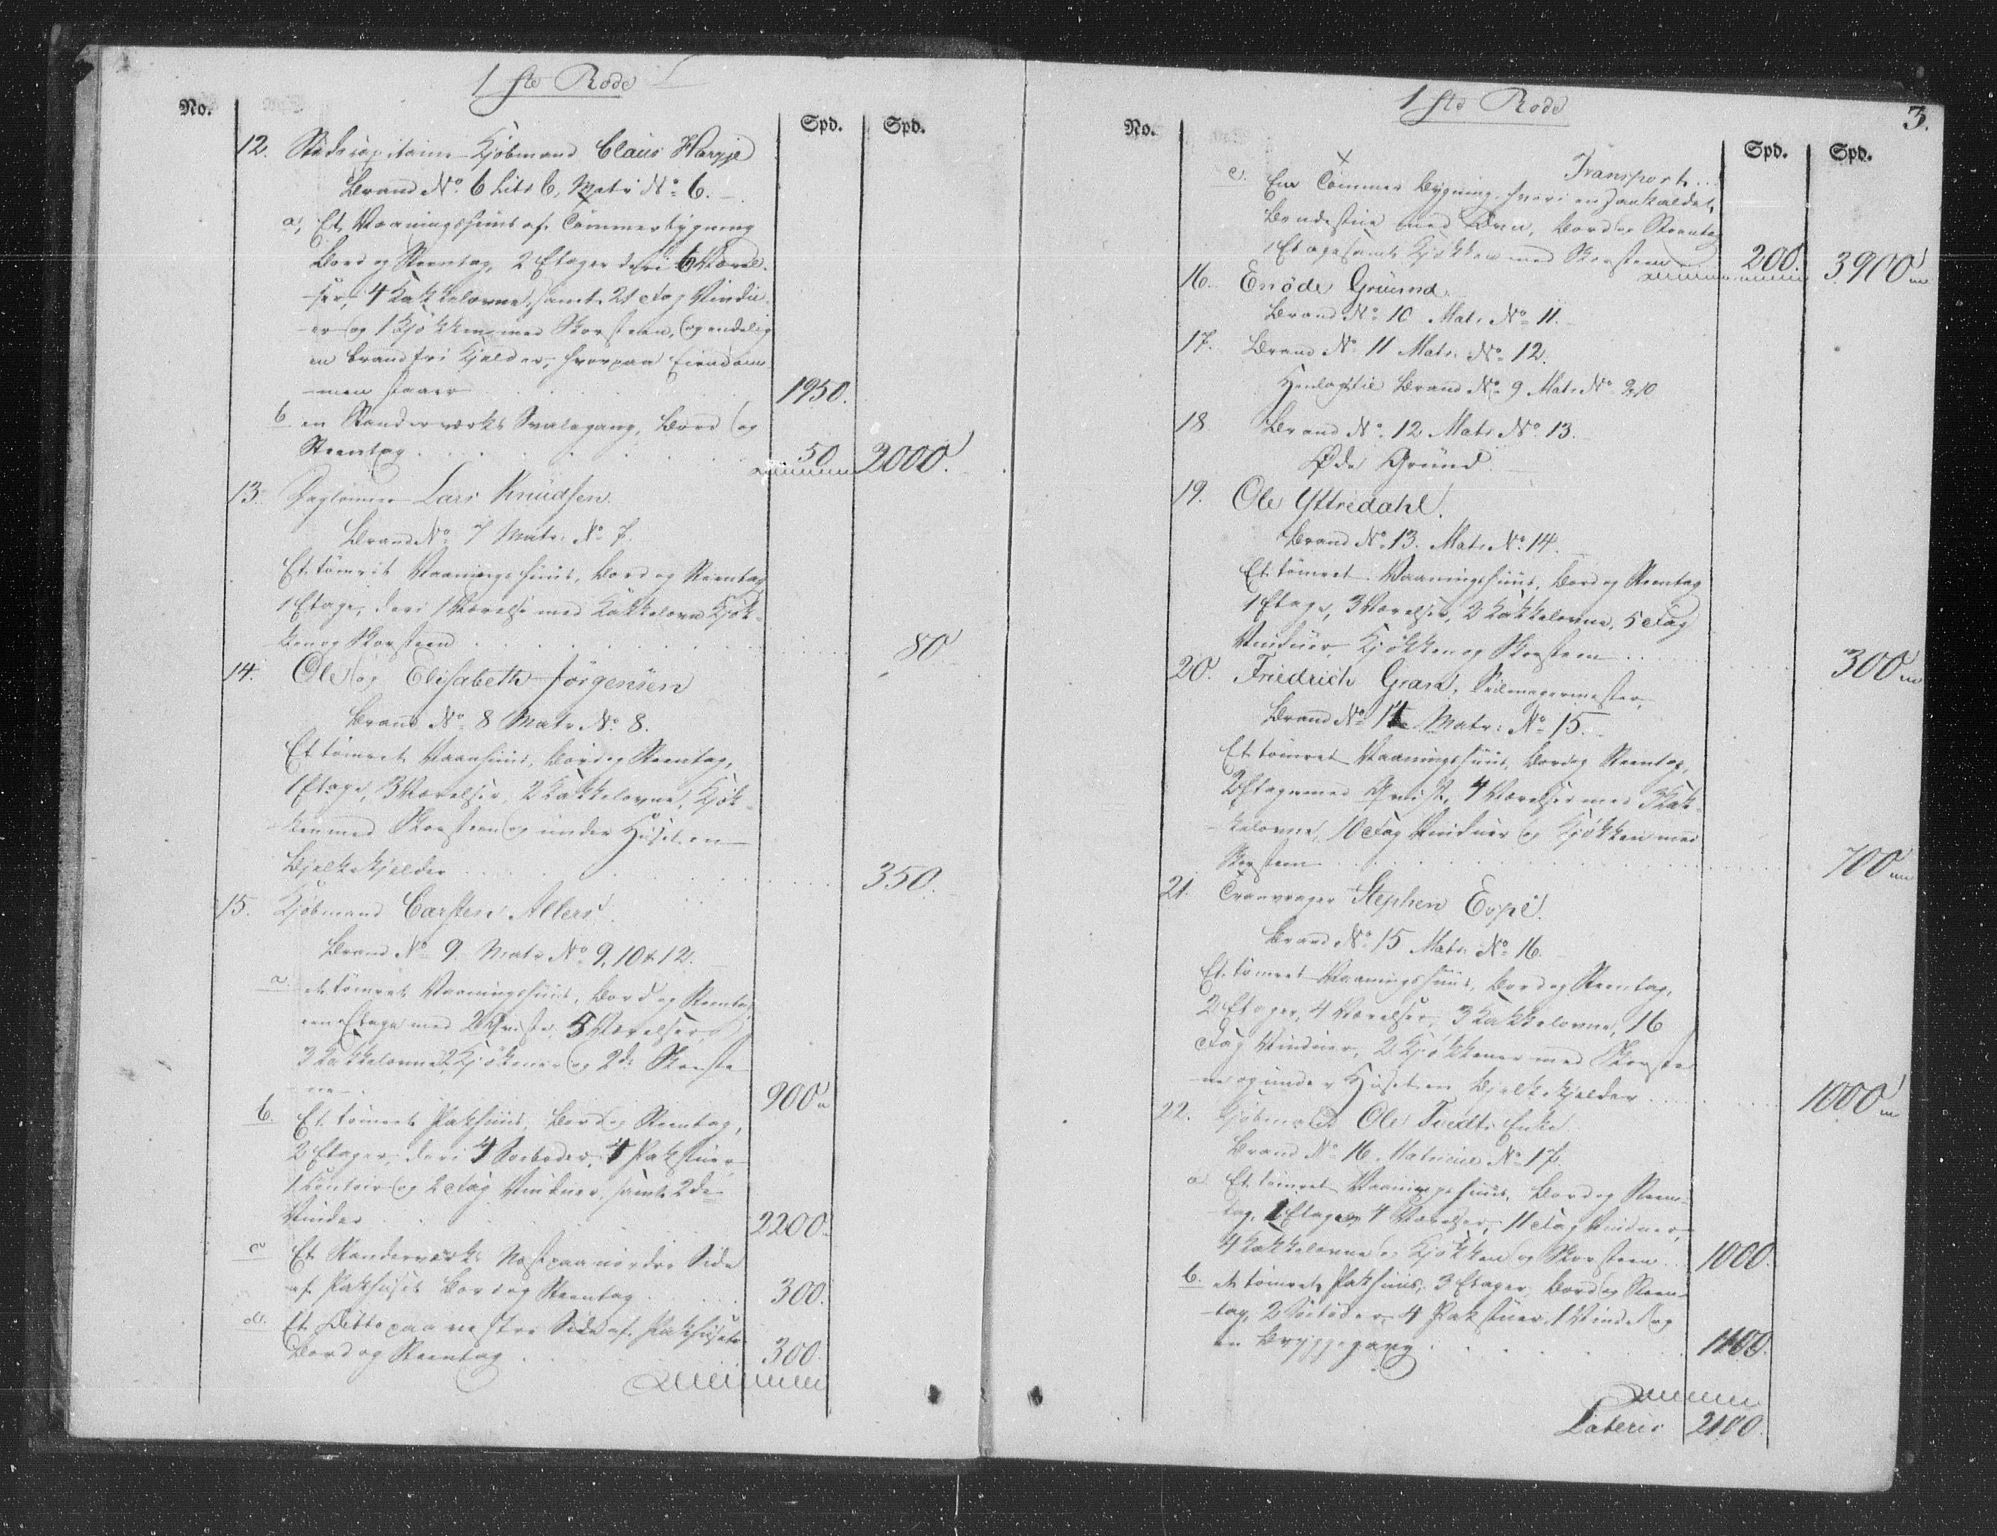 1ste Rode
No.
Spd. Spd.
12. Stadscapitaine Kjöbmand Claus Harye
Brand No. 6 Lits 6, Matr No. 6.
a, Et Vaaningshuus af Tömmerbygning
Bord og Steentag, 2 Etager deri 6 Værel-
ser, 4 Kakkelovne, samt 21 Fag Vindu-
er og 1 Kjökken med Skorsteen, og endelig
en brandfri Kjelder, hvorpaa Eiendom-
men staaer 1950.
b en Standerværks Svalegang, Bord og
Steentag 50 2000.
13. Dagleuner Lars Knudsen.
Brand No. 7 Matr. No. 7.
Et tömret Vaaningshuus, Bord og Steentag
1 Etage, deri 1 Værelse med Kakkelovn Kjök-
ken og Skorsteen 80
14. Ole og Elisabeth Jörgensen
Brand No. 8 Matr No. 8.
Et tömret Vaanhuus, Bord og Steentag,
1 Etage, 3 Værelser, 2 Kakkelovne, Kjök-
ken med Skorsteen og under Huset en
Bjelkekjelder 350.
15. Kjöbmand Carsten Allers.
Brand No. 9. Matr No. 9, 10 & 12.
a. et tömret Vaaningshuus, Bord og Steentag,
een Etage med 2 Qviste, 5 Værelser,
3 Kakkelovne, 2 Kjökener og 2de Skorste-
ne 900
b. Et tömret Pakhuus, Bord og Steentag,
2 Etager, deri 4 Soeboder, 4 Pakstuer,
1 Contoir og 2 Fag Vinduer, samt 2de
Vinder 2200.
c Et Standerværks Nöst paa nordre Side
af Pakhuset Bord og Steentag 300.
d. Et Ditto paa vestre Side af Pakhuset
Bord og Steentag 300.
1ste Rode
3.
No.
Spd. Spd.
Transport
e. En Tömmer Bygning, hvori en saakaldet
Bendestue med Ovn, Bord og Steentag
1 Etage samt Kjökken med Skorsteen 200. 3900
16. En öde Gruund.
Brand No. 10 Matr No. 11.
17. Brand No. 11 Matr. No. 12.
Henlagt til Brand No. 9 Matr No. 9, 10
18. Brand No. 12 Matr No. 13.
Øde Grund.
19. Ole Yttredahl.
Brand No. 13. Matr No. 14.
Et tömret Vaaningshuus, Bord og Steentag
1 Etage, 3 Værelser, 2 Kakkelovne, 5 Fag
Vinduer, Kjökken og Skorsteen 300
20. Friedrich Gran, Seilmagermester,
Brand No. 14 Matr: No. 15.
Et tömret Vaaningshuus, Bord og Steentag,
2 Etager med Qvist, 4 Værelser med 3 Kak-
kelovne, 10 Fag Vinduer og Kjökken med
Skorsteen 700
21. Tranvrager Stephen Espe.
Brand No. 15 Matr. No. 16.
Et tömret Vaaningshuus, Bord og Steentag,
2 Etager, 4 Værelser, 3 Kakkelovne, 16
Fag Vinduer, 2 Kjökkener med Skorste-
ne og under Huset en Bjelkekjelder 1000
22. Kjöbmand Ole Tvedts Enke.
Brand No. 16. Matricul No. 17.
a Et tömret Vaaningshuus, Bord og Steen-
tag, 1 Etage, 4 Værelser, 11 Fag Vinduer,
4 Kakkelovne og Kjökken og Skorsteen 1000.
b. et tömret Pakhuus, 3 Etager, Bord og Steen-
tag, 2 Söeboder, 4 Pakstuer, 1 Vinde og
en Bryggegang 1100.
Lateris 2100.